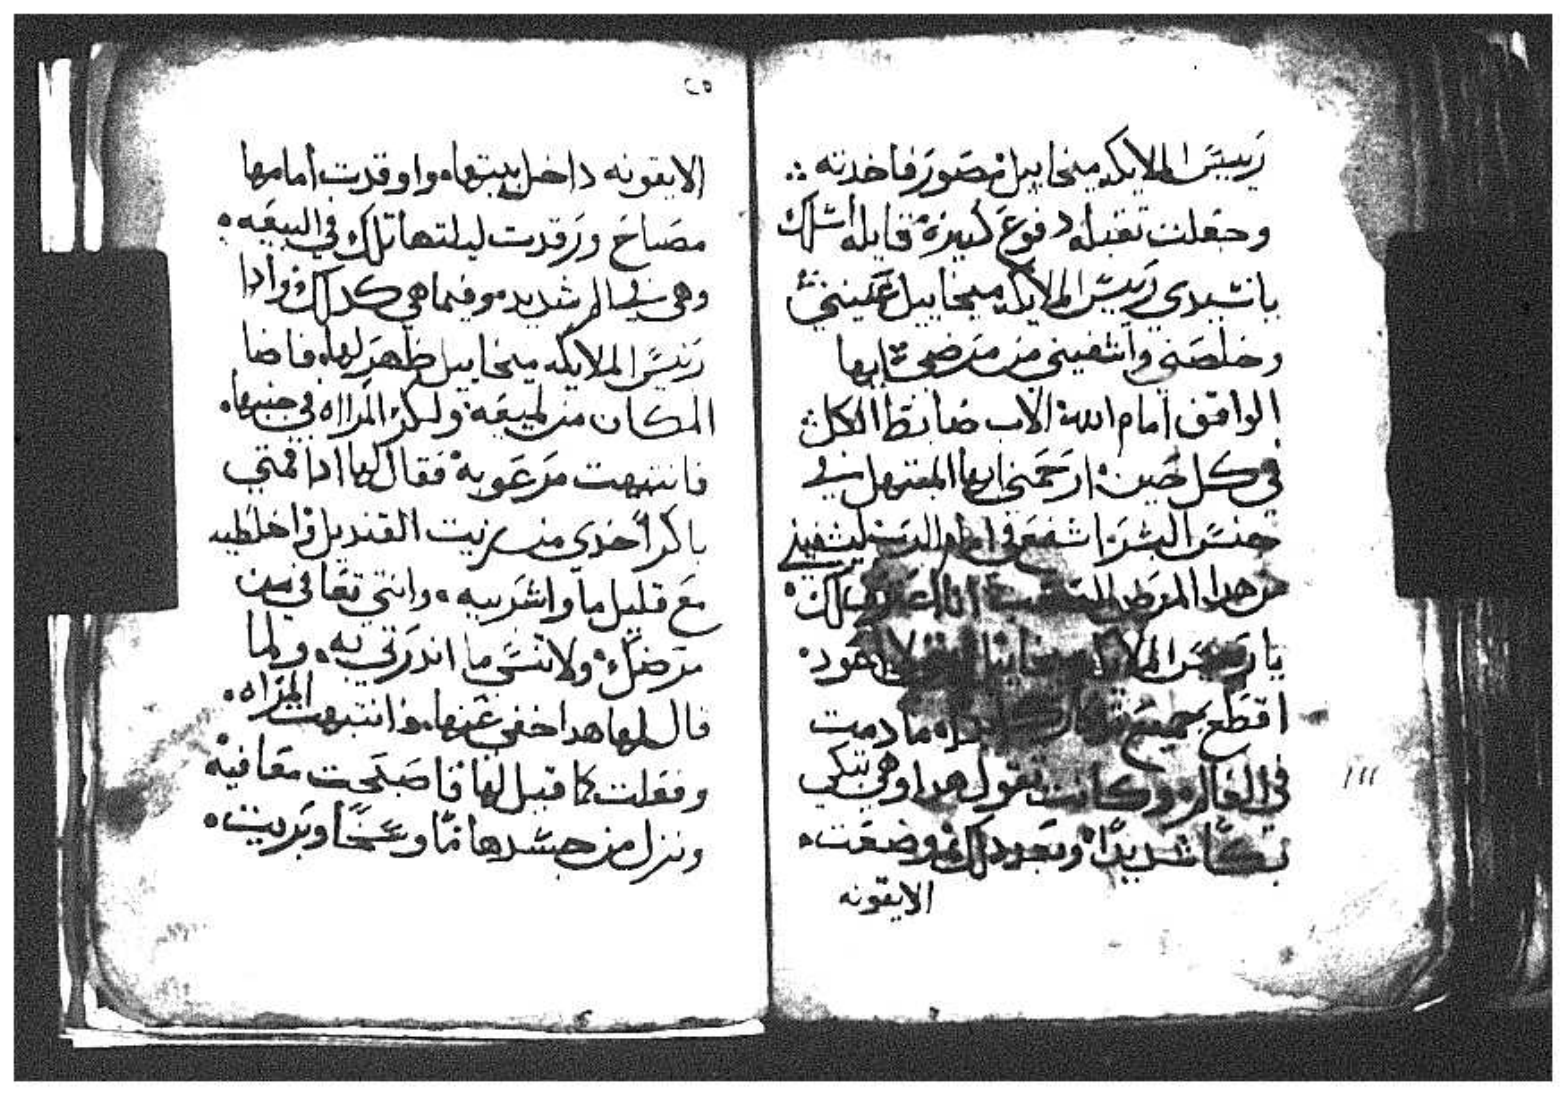 رييس الملايكه ميخاييل مصور فاخدته
وجعلت تقبله دفوع كتيره قايله اسلك
يا سيدي رييس الملايكه ميخاييل عينني
وخلصني واشفيني من مرضي ايها
الواقف امام الله الاب ضابط الكل
في كل حين ارحمني ايها المبتهل في
جنس البشر اشفع في امام ليشفيني
من هدا المرض
يا رييس الملايكه ميخاييل اعود
اقطع جميع ما دمت
في العالم وكانت تقول هدا وهي تبكي
بكاً شديداً وبعد دلك وضعت
الايقونه
٢٥
الايقونه داخل بيتها واوقدت امامها
مصباح ورقدت ليلتها تلك في البيعه
وهي في الم شديد وفيما هي كدلك وادا
رييس الملايكه ميخاييل ظهر لها فاضا
المكان من لميعه ولكز المراه في جنبها
فانتبهت مرعوبه فقال لها ادا قمتي
باكراً خدي من زيت القنديل واخلطيه
مع قليل ما واشربيه وانتي تعافي من
مرضك ولا تنسي ما اندرتي به ولما
قال لها هدا خفي عنها وانتبهت المراه
وفعلت كما قيل لها فاصبحت معافيه
ونزل من جسدها ماً وبريت